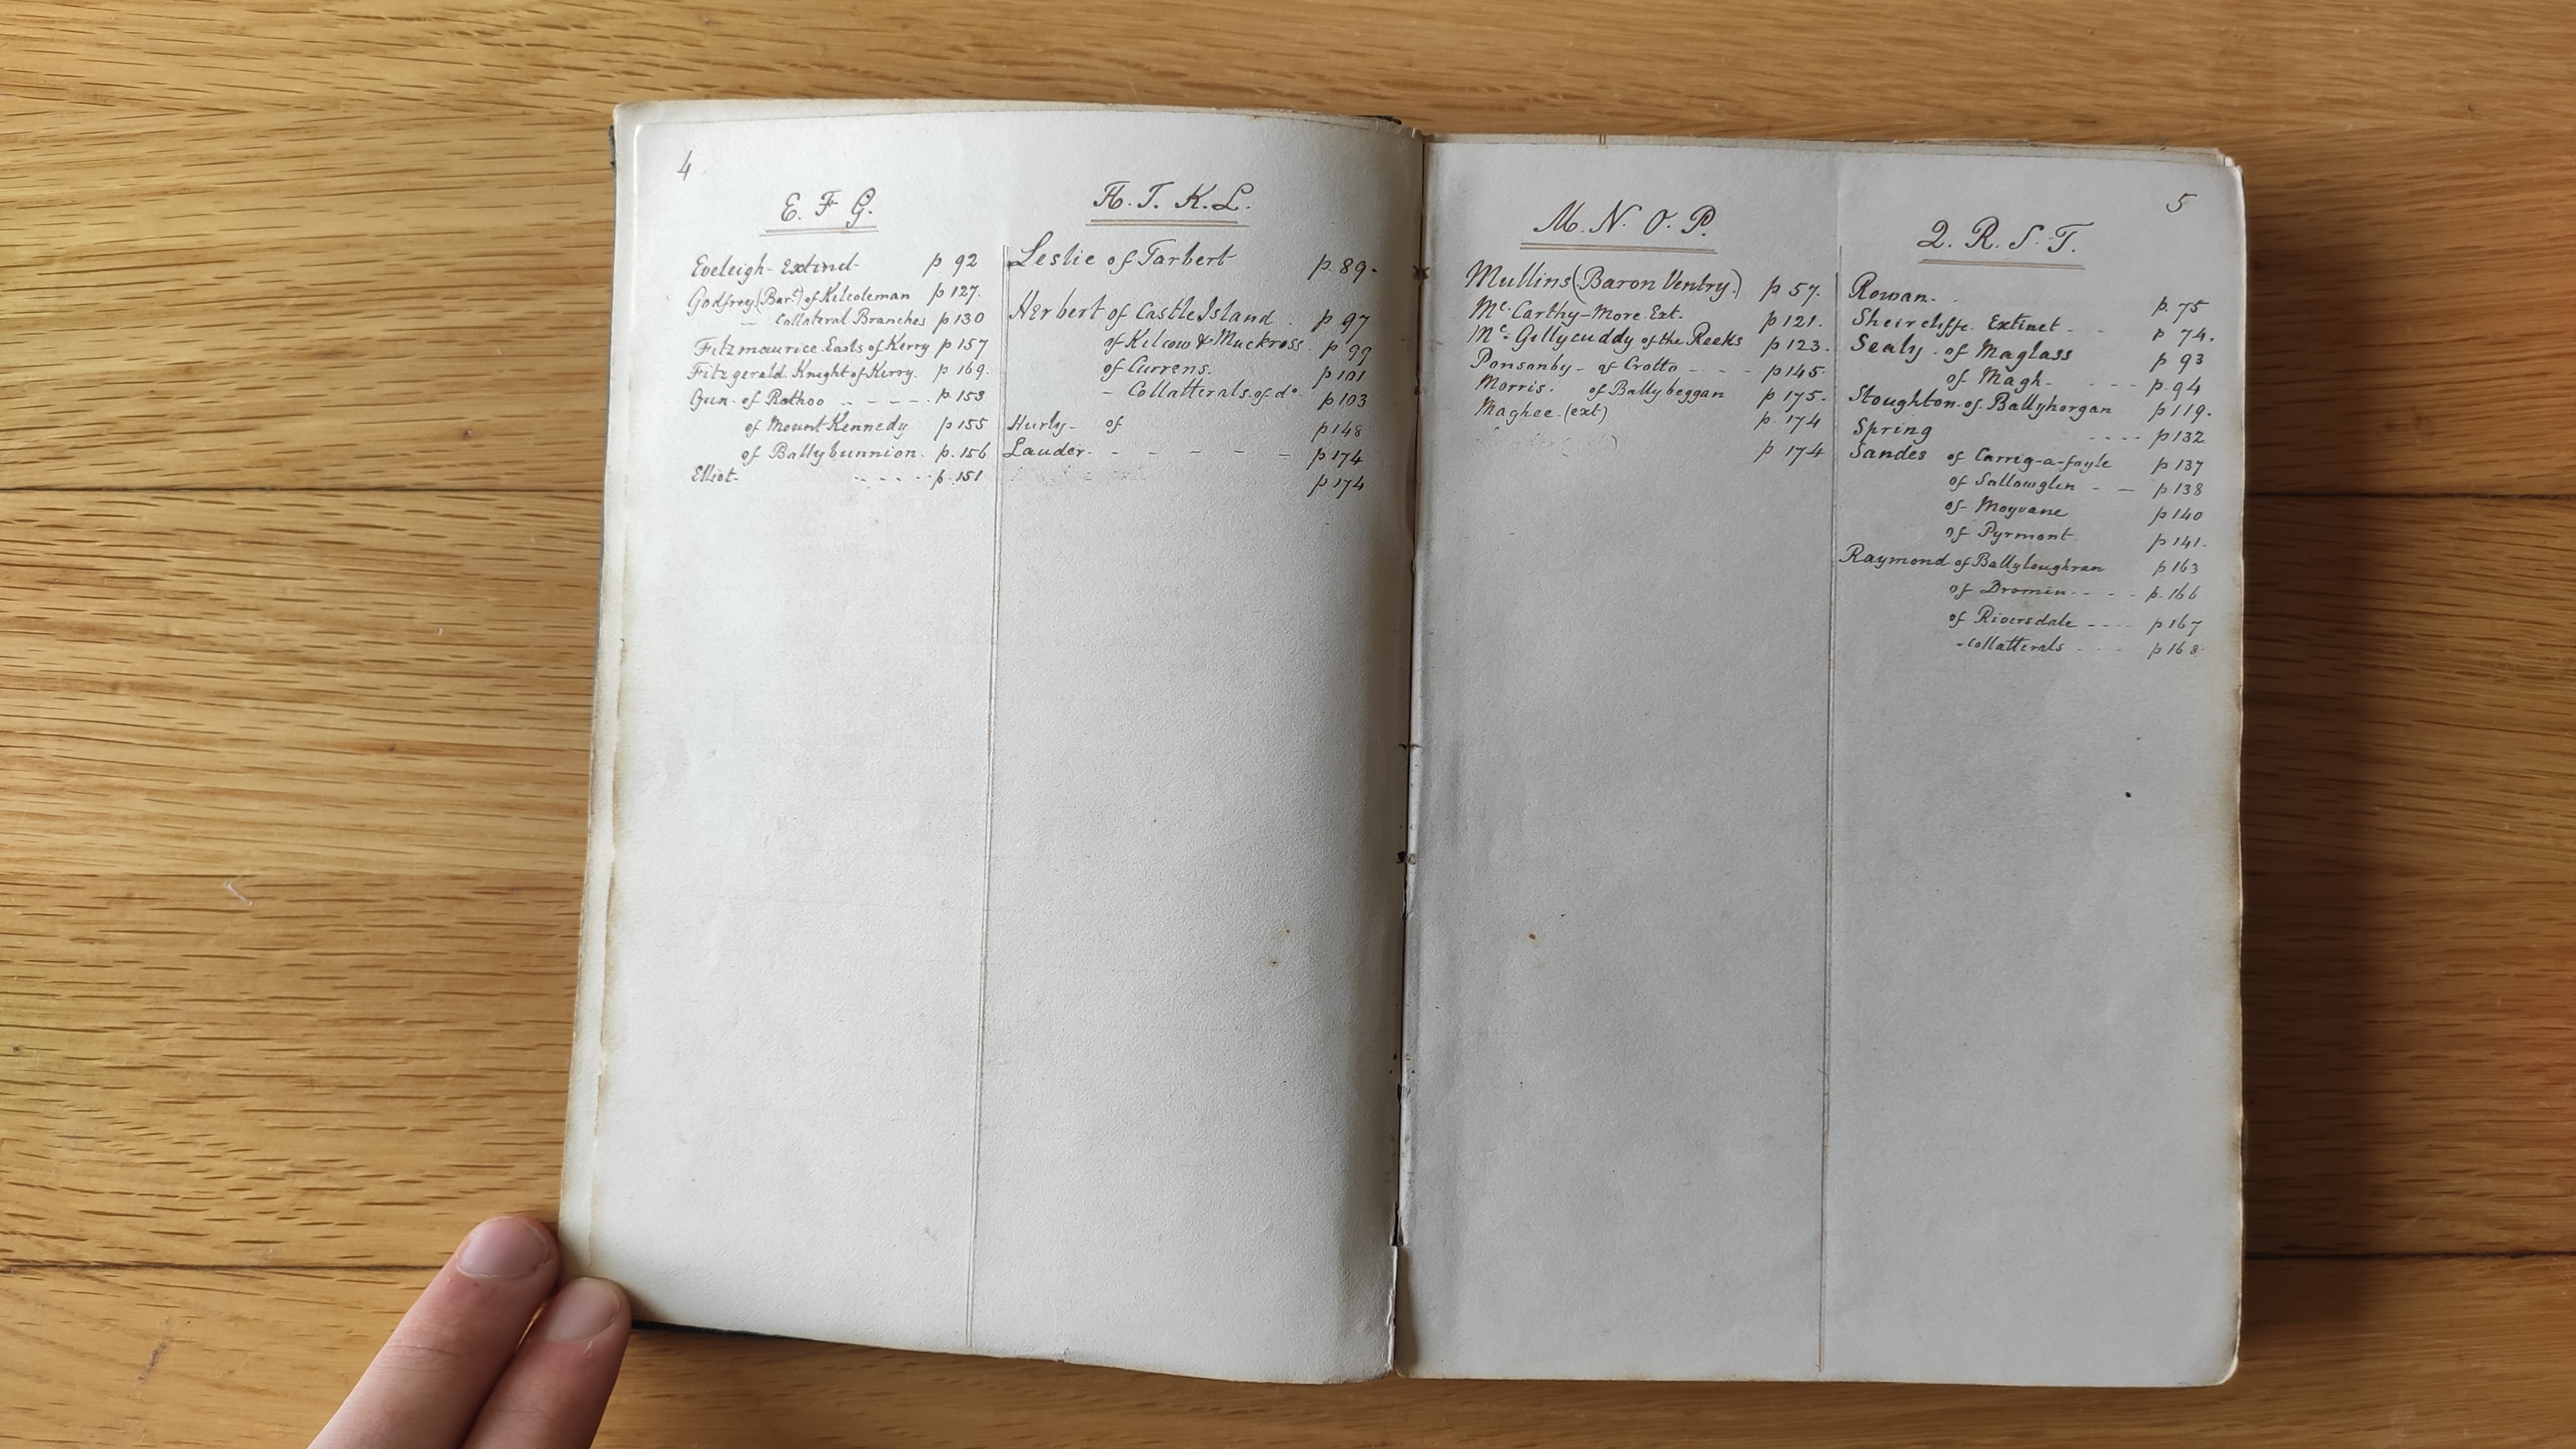 4
E. F G.
Eveleigh - Extinct - p 92
Godfrey (Bart) of Kilcoleman p 127.
— Collateral Branches p 130
Fitzmaurice Earls of Kerry p 157
Fitzgerald Knight of Kerry. p 169.
Gun - of Rathoo - - - - - p. 153
of Mount Kennedy p 155
of Ballybunnion. p. 156
Elliot - - - - - p. 151
H. I. K. L.
Leslie of Tarbert p. 89 -
Herbert of Castle Island. p 97
of Kilcow & Muckross. p 99
of Currens. p 101
- Collatterals. of do. p 103
Hurly - of p 148
Lauder. - - - - - p 174
p 174
M. N. O. P.
Mullins (Baron Ventry.) p 57.
Mc. Carthy - More. Ext. p 121.
Mc. Gillycuddy of the Reeks p 123.
Ponsonby - of Crotto - - - p 145
Morris. of Ballybeggan p 175 -
Maghee. (ext) p. 174
p 174
5
Q. R. S. T.
Rowan. p. 75
Sheircliffe. Extinct - - p 74.
Sealy. of Maglass p 93
of Magh - - - - p. 94
Stoughton. of Ballyhorgan p 119.
Spring - - - - p 132
Sandes of Carrig-a-foyle p 137
of Sallowglen - — p 138
of - Moyvane p 140
of Pyrmont p 141.
Raymond of Ballyloughran p 163
of Dromin - - - - p. 166
of Riversdale - - - - p 167
- collatterals - - - p 168